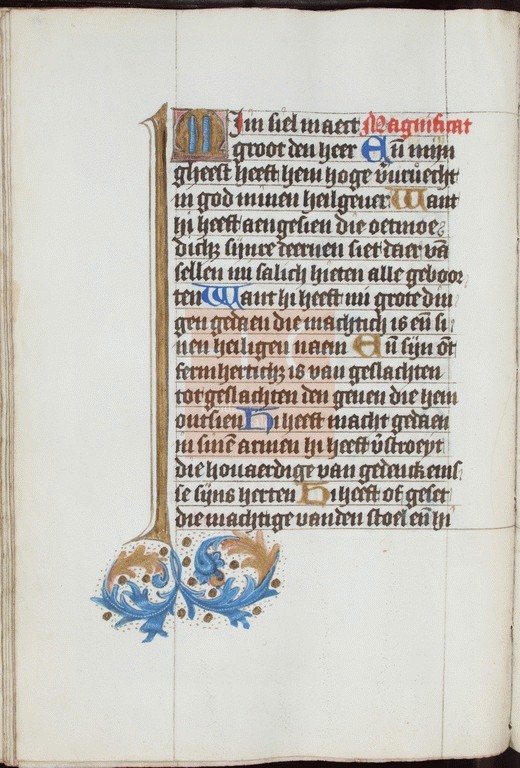 Mijn siel maect Magnificat
groot den heer Eñ mijn
gheest heeft hem hoge v̄vruecht
in god minen heilgeuer Want
hi heeft aengesien die oetmoe
dich sijnre deernen siet daer vā
sellen mi salich hieten alle geboor
ten Want hi heeft mi grote din
gen gedaen die machtich is eñ si
nen heiligen naem Eñ sijn ōt
fermhertich is van geslachten
tot geslachten den genen die hem
ontsien Hi heeft macht gedaen
in sinē armen hi heeft v̄stroeyt
die houaerdige van gedenckenis
se sijns herten Hi heeft of geset
die machtige vanden stoel eñ hi